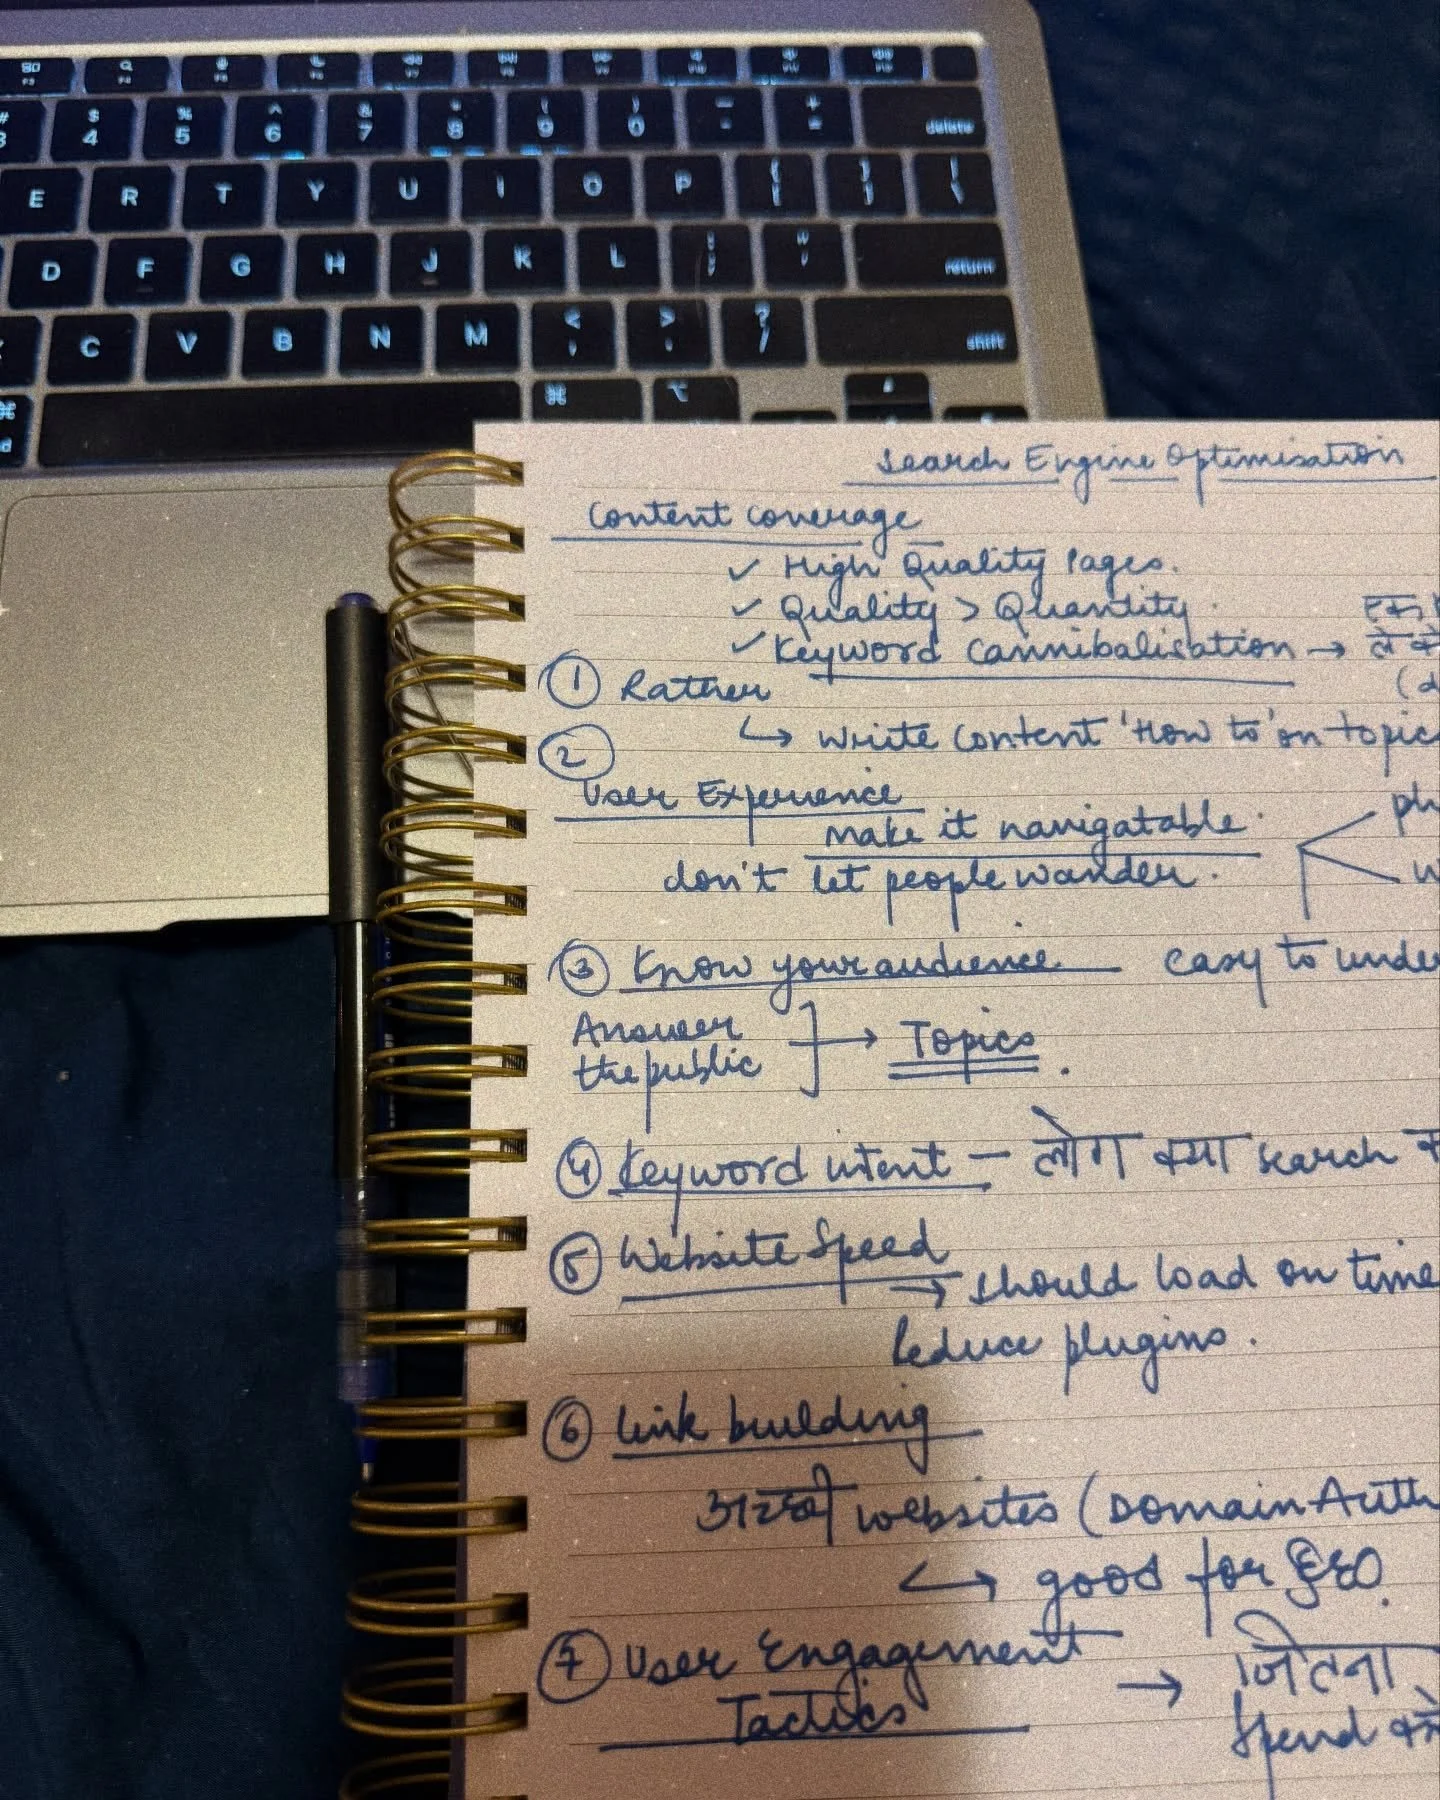 $ % ^ & * ( ) _ +
4 5 6 7 8 9 0 - = delete
E R T Y U I O P { } |
[ ] \
D F G H J K L : "
; ' return
C V B N M < > ?
, . / shift
⌘ ⌥
Search Engine Optimisation
Content coverage
✓ High Quality Pages.
✓ Quality > Quantity.
✓ Keyword Cannibalisation →
① Rather
↳ Write content 'How to' on topic
②
User Experience
make it navigatable.
don't let people wander.
③ Know your audience easy to unde
Answer
the public → Topics.
④ Keyword intent – लोग क्या search
⑤ Website Speed
→ should load on time
Reduce plugins.
⑥ Link building
अच्छी websites (Domain Auth
↳ good for SEO.
⑦ User Engagement → जितना
Tactics
Spend